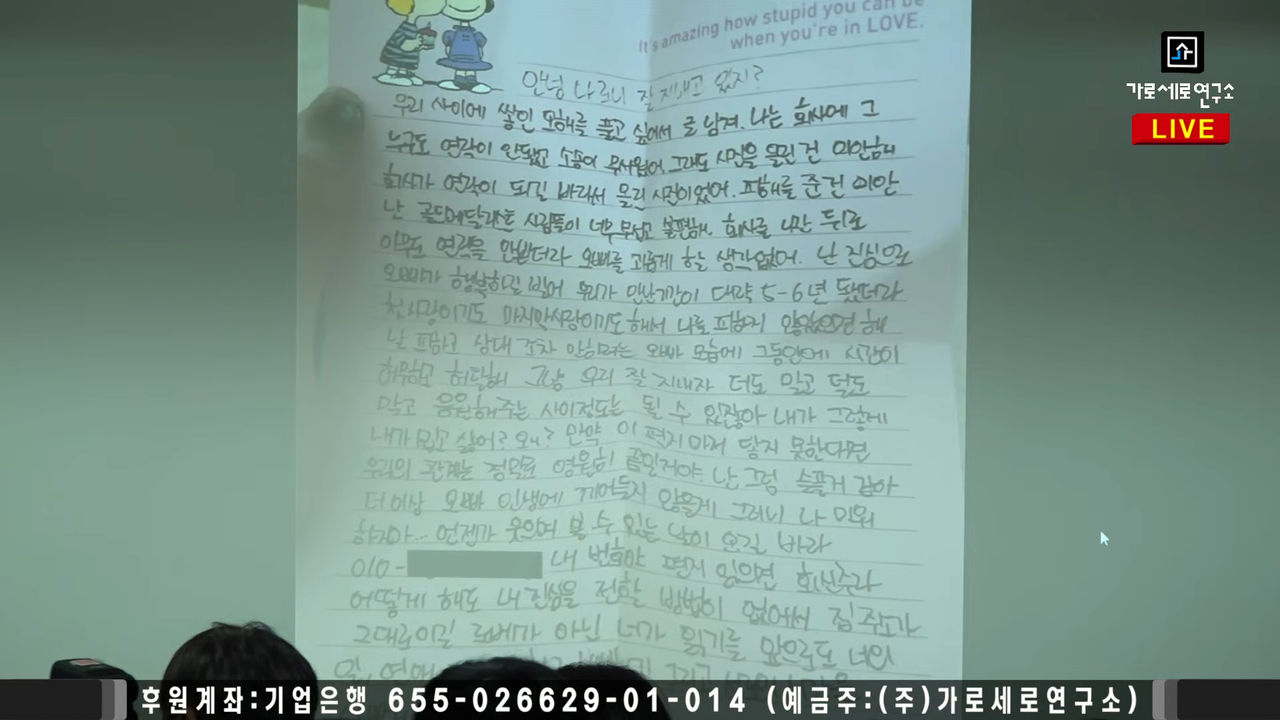 It's amazing how stupid you can be
when you're in LOVE.
가로세로연구소
LIVE
안녕 나 르니 잘 지내고 있지?
우리 사이에 쌓인 오해를 풀고 싶어서 글 남겨. 나는 회사에 그
누구도 연락이 안됐고 소송이 무서웠어. 그래도 사진을 올린 건 미안해
회사가 연락이 되길 바라서 올린 사진이었어. 피해를 준건 미안
난 골드메달리스트 사람들이 너무 무섭고 불편해. 회사를 나간 뒤로
아무도 연락을 안받더라 오빠를 괴롭게 할 생각없어. 난 진심으로
오빠가 행복하길 빌어 우리가 만난기간이 대략 5-6년 됐더라
첫사랑이기도 마지막사랑이기도 해서 나를 피하지 않았으면 해
난 피하고 상대 조차 안하려는 오빠 모습에 그동안에 시간이
허무하고 허탈해 그냥 우리 잘 지내자 더도 말고 덜도
말고 응원해주는 사이정도는 될 수 있잖아 내가 그렇게
내가 밉고 싫어? 왜? 만약 이 편지마저 닿지 못한다면
우리의 관계는 정말로 영원히 끝일거야. 난 그럼 슬플거 같아
더이상 오빠 인생에 끼어들지 않을게 그러니 나 미워
하지마... 언젠가 웃으며 볼 수 있는 날이 오길 바라
010- 내 번호야 편지 읽으면 회신주라
어떻게 해도 내 진심을 전할 방법이 없어서 집 주소가
그대로이길 로베가 아닌 너가 읽기를 앞으로도 너의
후원계좌:기업은행 655-026629-01-014 (예금주:(주)가로세로연구소)